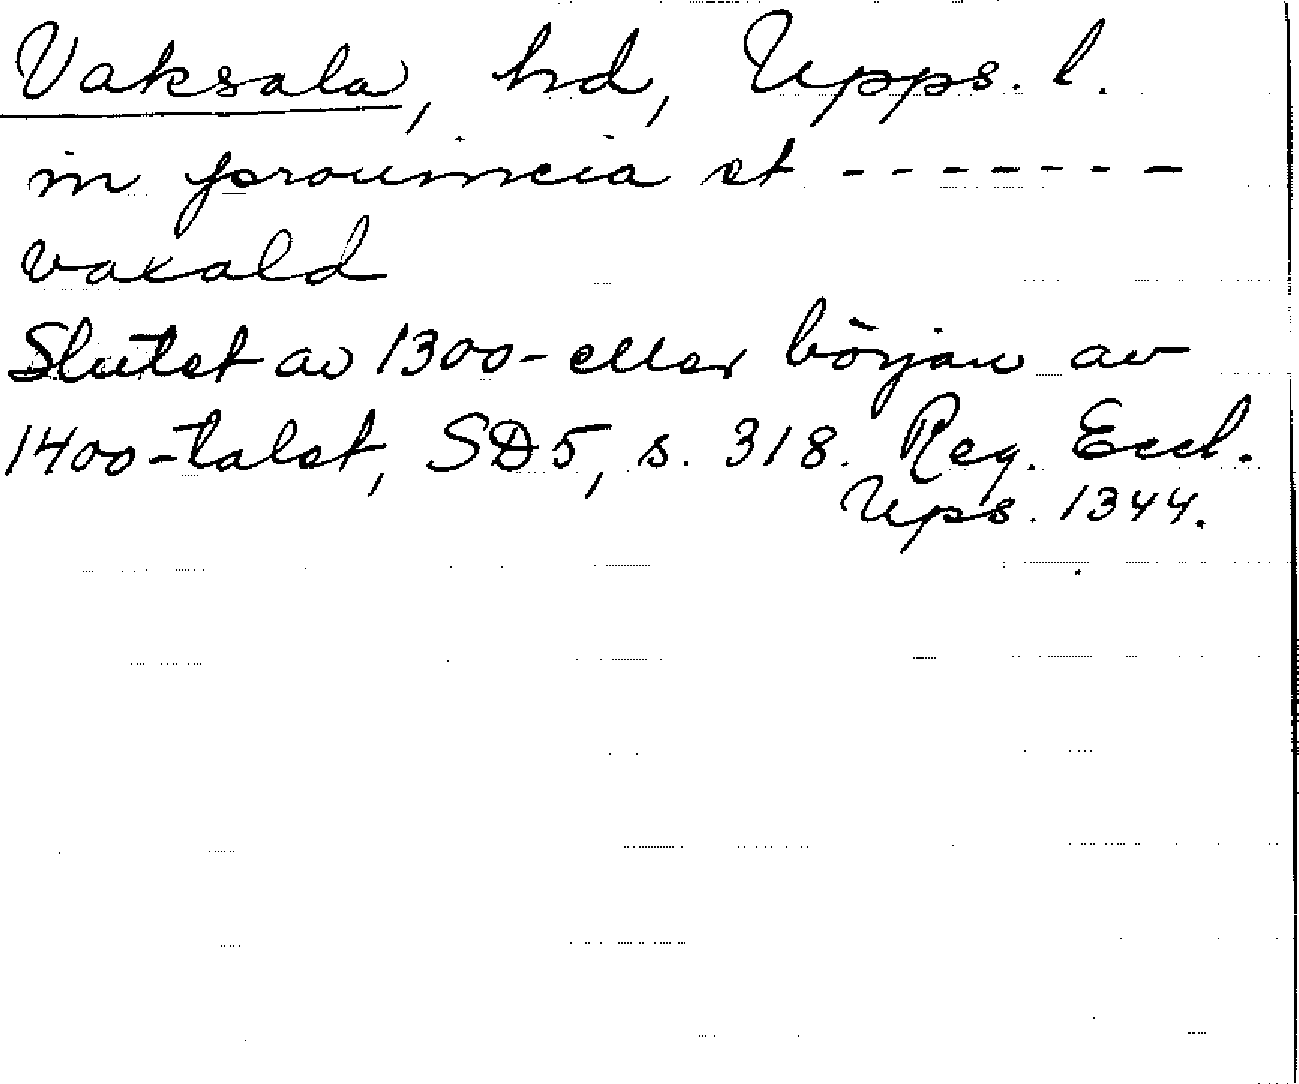 Vaksala, hd, Upps. l.
in prouincia et - - - - - - -
vaxald
Slutet av 1300- eller början av
1400-talet, SD5, s. 318. Reg. Eccl.
Ups. 1344.